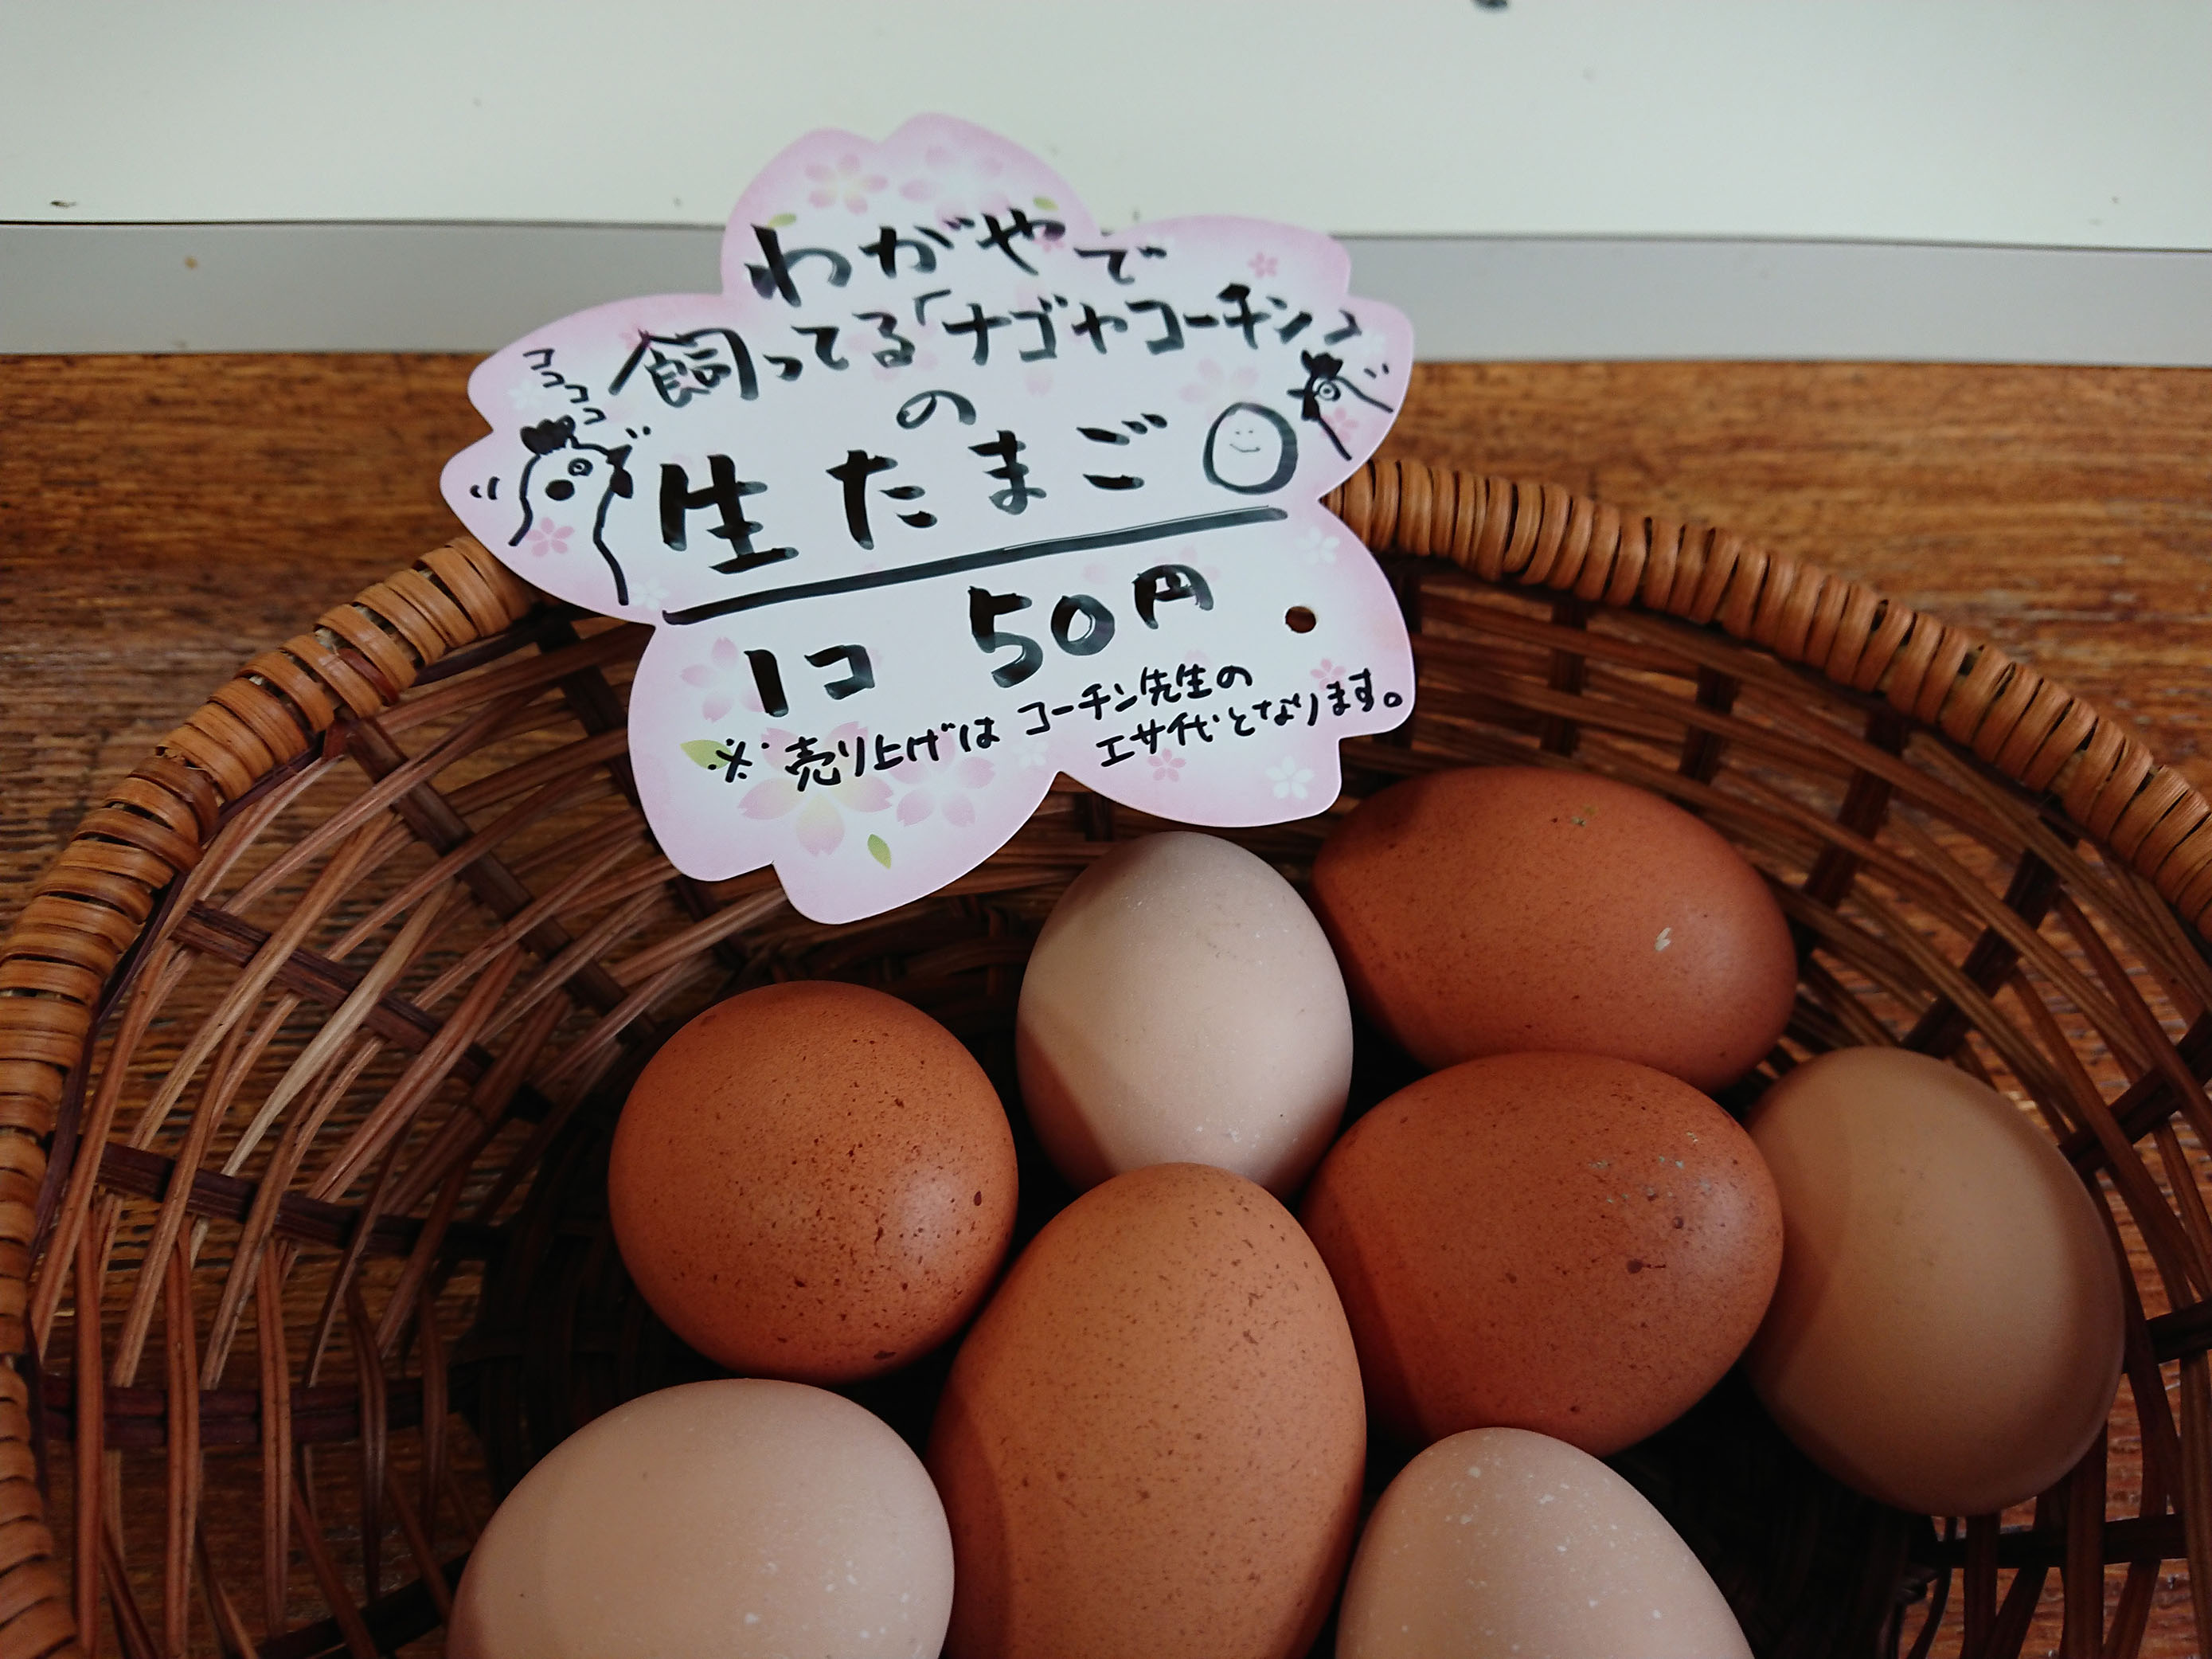 わがやで
飼ってる「ナゴヤコーチン」
の
ココココ
生たまご
1コ 50円
※売り上げは コーチン先生の
エサ代となります。